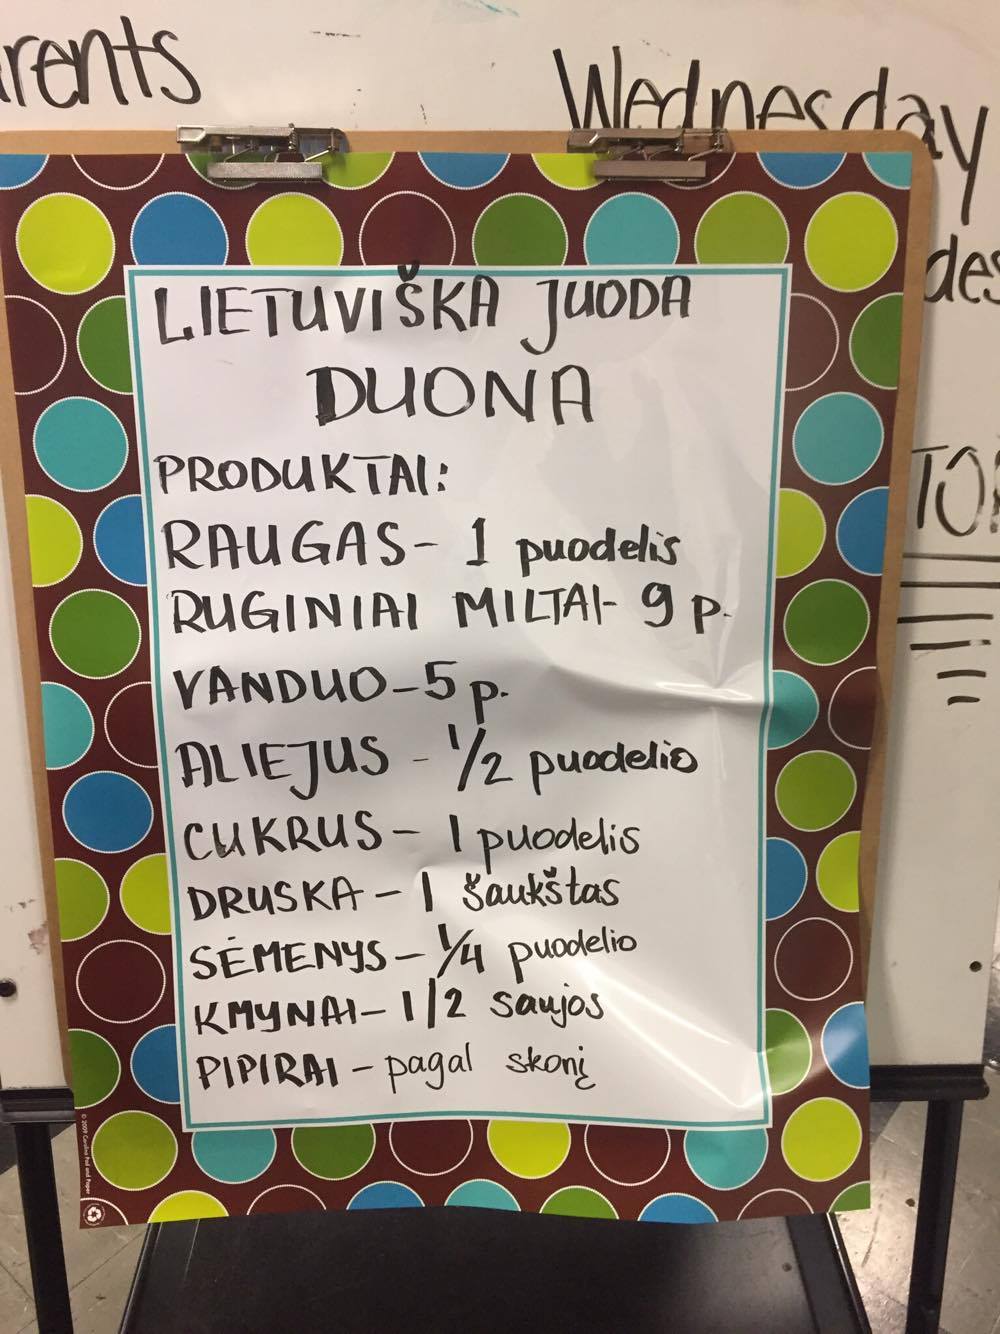 Wednesday
LIETUVIŠKA JUODA
DUONA
PRODUKTAI:
RAUGAS - 1 puodelis
RUGINIAI MILTAI - 9 p.
VANDUO - 5 p.
ALIEJUS - 1/2 puodelio
CUKRUS - 1 puodelis
DRUSKA - 1 šaukštas
SĖMENYS - 1/4 puodelio
KMYNAI - 1/2 saujos
PIPIRAI - pagal skonį